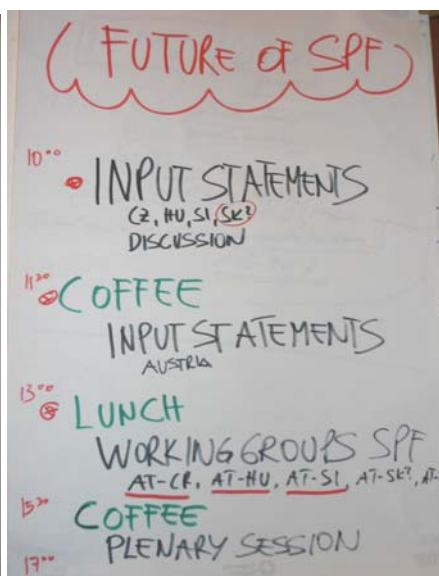 FUTURE OF SPF
10⁰⁰
INPUT STATEMENTS
CZ, HU, SI, SK?
DISCUSSION
11³⁰
COFFEE
INPUT STATEMENTS
AUSTRIA
13⁰⁰
LUNCH
WORKING GROUPS SPF
AT-CR, AT-HU, AT-SI, AT-SK?, AT-
15³⁰
COFFEE
PLENARY SESSION
17⁰⁰